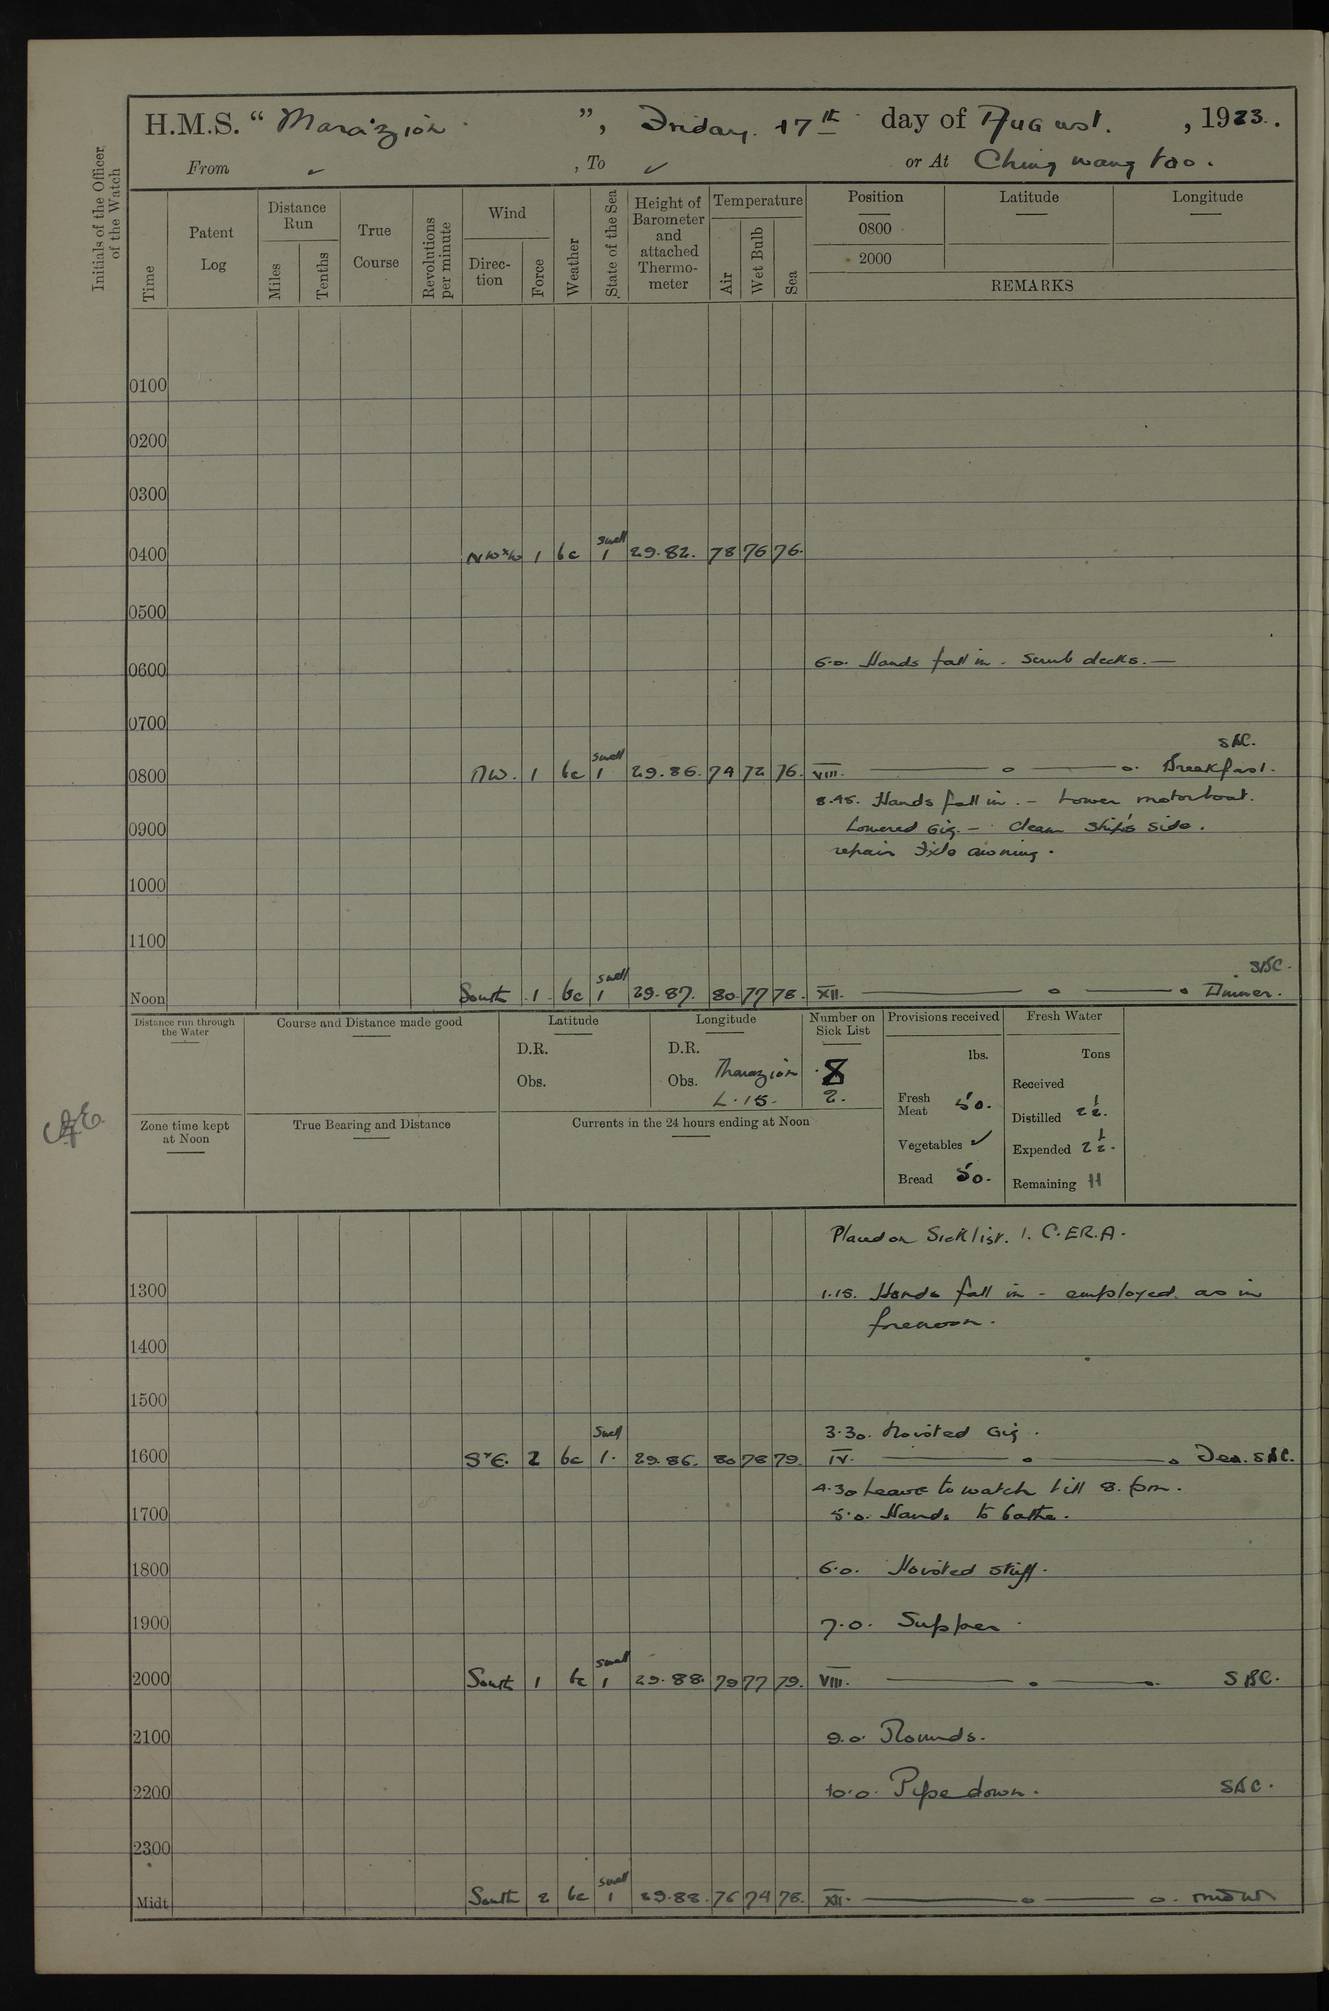 H.M.S. “ Marazion ”, Friday 17th day of August, 1923.
From ✓ , To ✓ or At Chingwangtao.
Initials of the Officer of the Watch
Time
Patent Log
Distance Run
Miles
Tenths
True Course
Revolutions per minute
Wind
Direc-tion
Force
Weather
State of the Sea
Height of Barometer and attached Thermo-meter
Temperature
Air
Wet Bulb
Sea
Position Latitude Longitude
0800
2000
REMARKS
0100
0200
0300
0400 NW×W 1 bc swell 1 29.82. 78 76 76.
0500
0600 6.0. Hands fall in. Scrub decks. —
0700
SBC.
0800 NW. 1 bc swell 1 29.86. 74 72 76. VIII. Breakfast.
8.45. Hands fall in. – Lower motorboat.
0900 Lowered Gig. – Clean Ship's side.
repair Fxle awning.
1000
1100
SBC.
Noon South 1 bc swell 1 29.87. 80 77 78. XII. Dinner.
Distance run through the Water
Course and Distance made good
Latitude
D.R.
Obs.
Longitude
D.R.
Obs. Marazion
L.15.
Number on Sick List
8
2.
Provisions received
lbs.
Fresh Meat 50.
Vegetables ✓
Bread 50.
Fresh Water
Tons
Received
Distilled 2½.
Expended 2½.
Remaining 11
Zone time kept at Noon
True Bearing and Distance
Currents in the 24 hours ending at Noon
Placed on Sick list. 1. C.ER.A.
1300 1.15. Hands fall in – employed as in
forenoon.
1400
1500
3.30. Hoisted Gig.
1600 S×E. 2 bc Swell 1. 29.86. 80 78 79. IV. SBC.
4.30 Leave to watch till 8. pm.
1700 5.0. Hands to bathe.
1800 6.0. Hoisted skiff.
1900 7.0. Supper.
2000 South 1 bc swell 1 29.88. 79 77 79. VIII. SBC.
2100 9.0. Rounds.
2200 10.0. Pipe down. SBC.
2300
Midt South 2 bc swell 1 29.88. 76 74 78. XII.